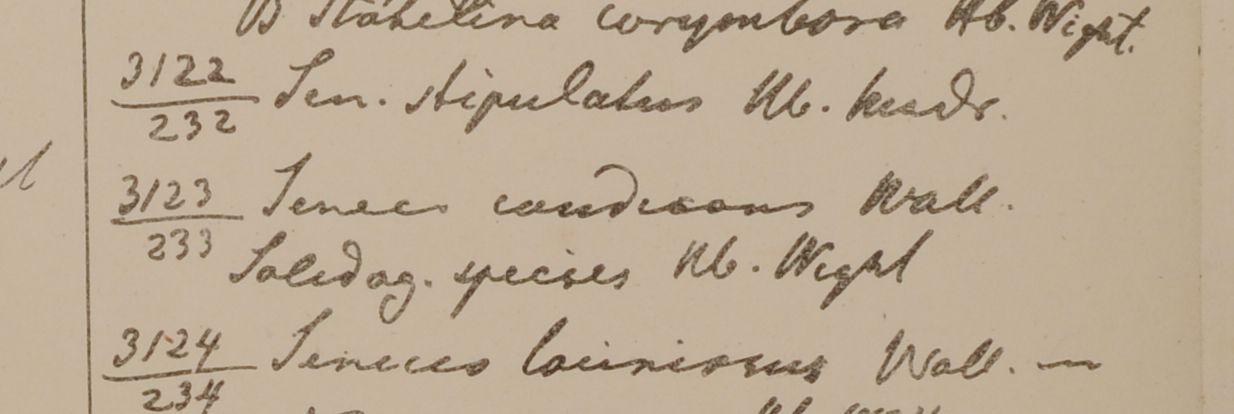 B Stähelina corymbosa Hb. Wight.
3122 Sen. stipulatus Hb. madr.
232
3123 Senecio candicans Wall.
233
Solidag. species Hb. Wight
3124 Senecio laciniosus Wall. —
234